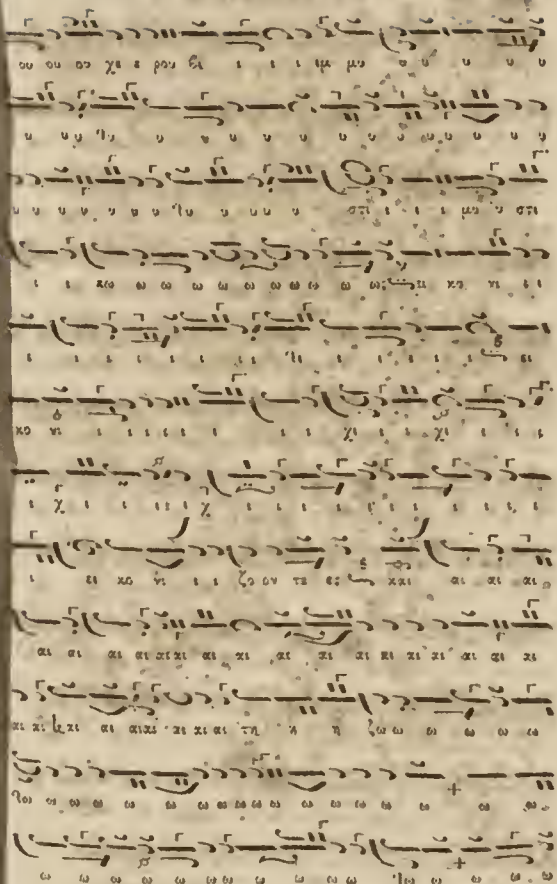 ου ου ου χε ε ρου βι ι ι ι ιμ μυ υ υ υ υ υ
υ υυ υ υ υ υ υ υ υ υ υ υ υ υ υ
υ υ υ υ υ υ υ υ υυ υ στι ι ι ι μυ υ στι
ι ι κω ω ω ω ω ω ω ω ω ω ω ει κο νι ι ι
ι ι ι ι ι ι ι ι ι ι ι ι ι ει
κο νι ι ι ι ι ι ι ι ι ι χι ι ι χι ι ι ι
ι χ ι ι ι ι ι χ ι ι ι ι ι ι ι ι ι ι
ι ει κο νι ι ι ζο ον τε ες και αι αι αι
αι αι αι αι αι αι αι αι αι αι αι αι αι αι αι αι
αι αι και αι αιαι αι αι αι τη η η ζω ω ω ω ω ω
ω ω ω ω ω ω ω ω ω ω ω ω ω ω
ω ω ω ω ω ω ω ω ω ω ω